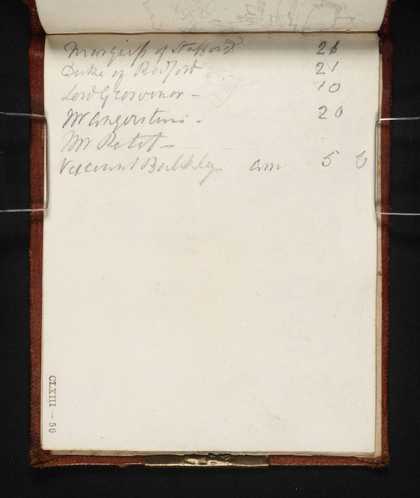 Marquiss of Stafford 26
Duke of Bedford 21
Lord Grosvenor - 10
Mr Angerstein - 20
Mr Petit -
Viscount Bulkley 5 6
CLXIII - 50